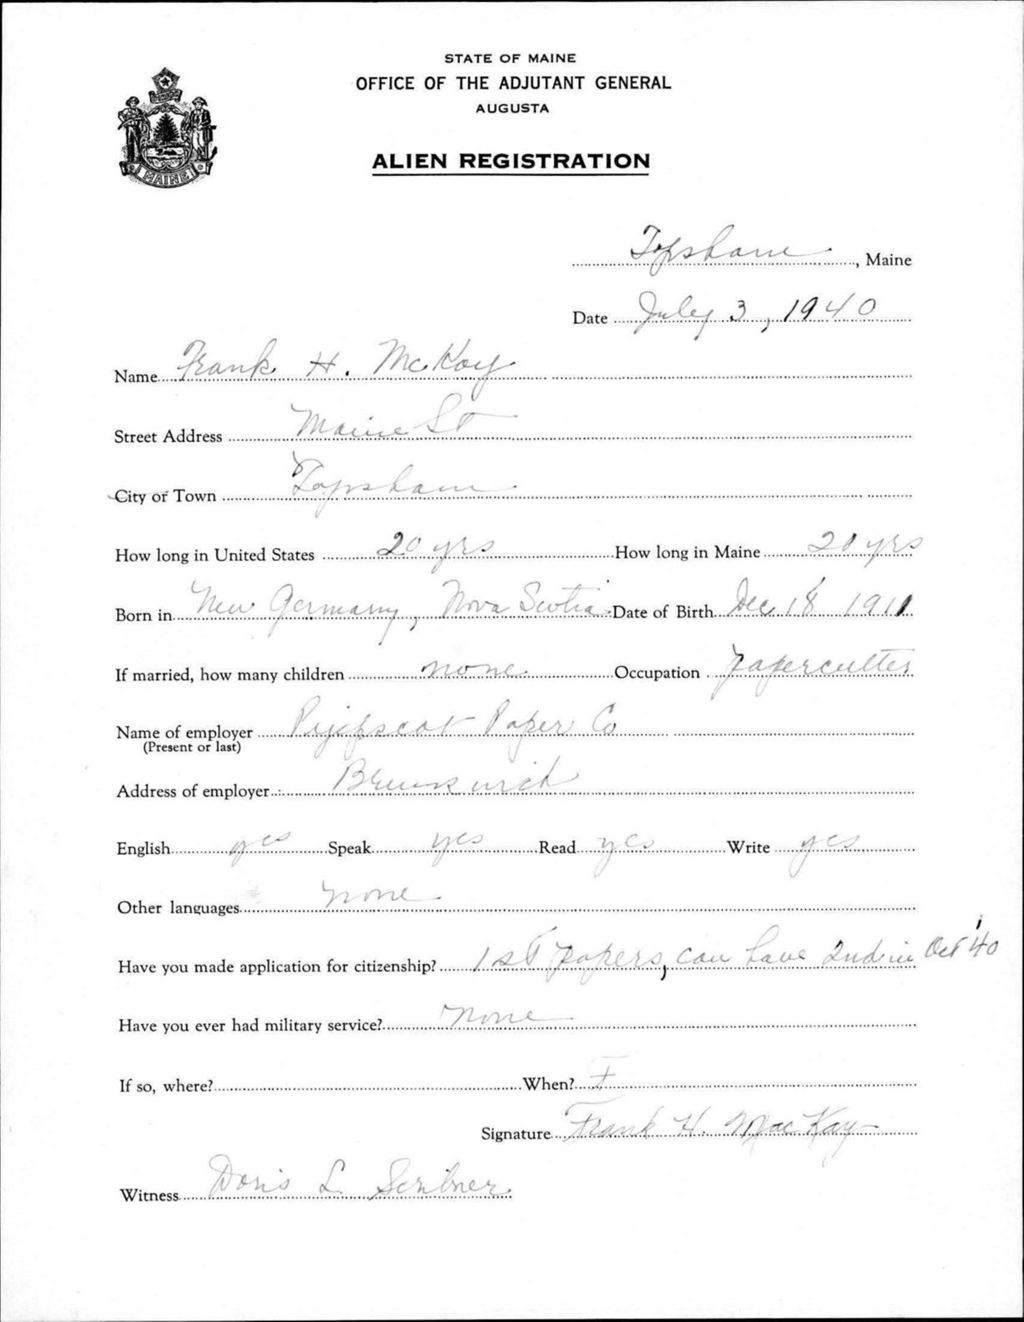 STATE OF MAINE
OFFICE OF THE ADJUTANT GENERAL
AUGUSTA
MAINE
ALIEN REGISTRATION
Topsham, Maine
Date July 3, 1940
Name Frank H. McKay
Street Address Maine St
City or Town Topsham
How long in United States 20 yrs How long in Maine 20 yrs
Born in New Germany, Nova Scotia Date of Birth Dec 18 1911
If married, how many children none Occupation papercutter
Name of employer Pejepscot Paper Co
(Present or last)
Address of employer Brunswick
English yes Speak yes Read yes Write yes
Other languages none
Have you made application for citizenship? 1st papers, can have 2nd in Oct '40
Have you ever had military service? none
If so, where? When?
Signature Frank H. MacKay
Witness Doris L. Scribner